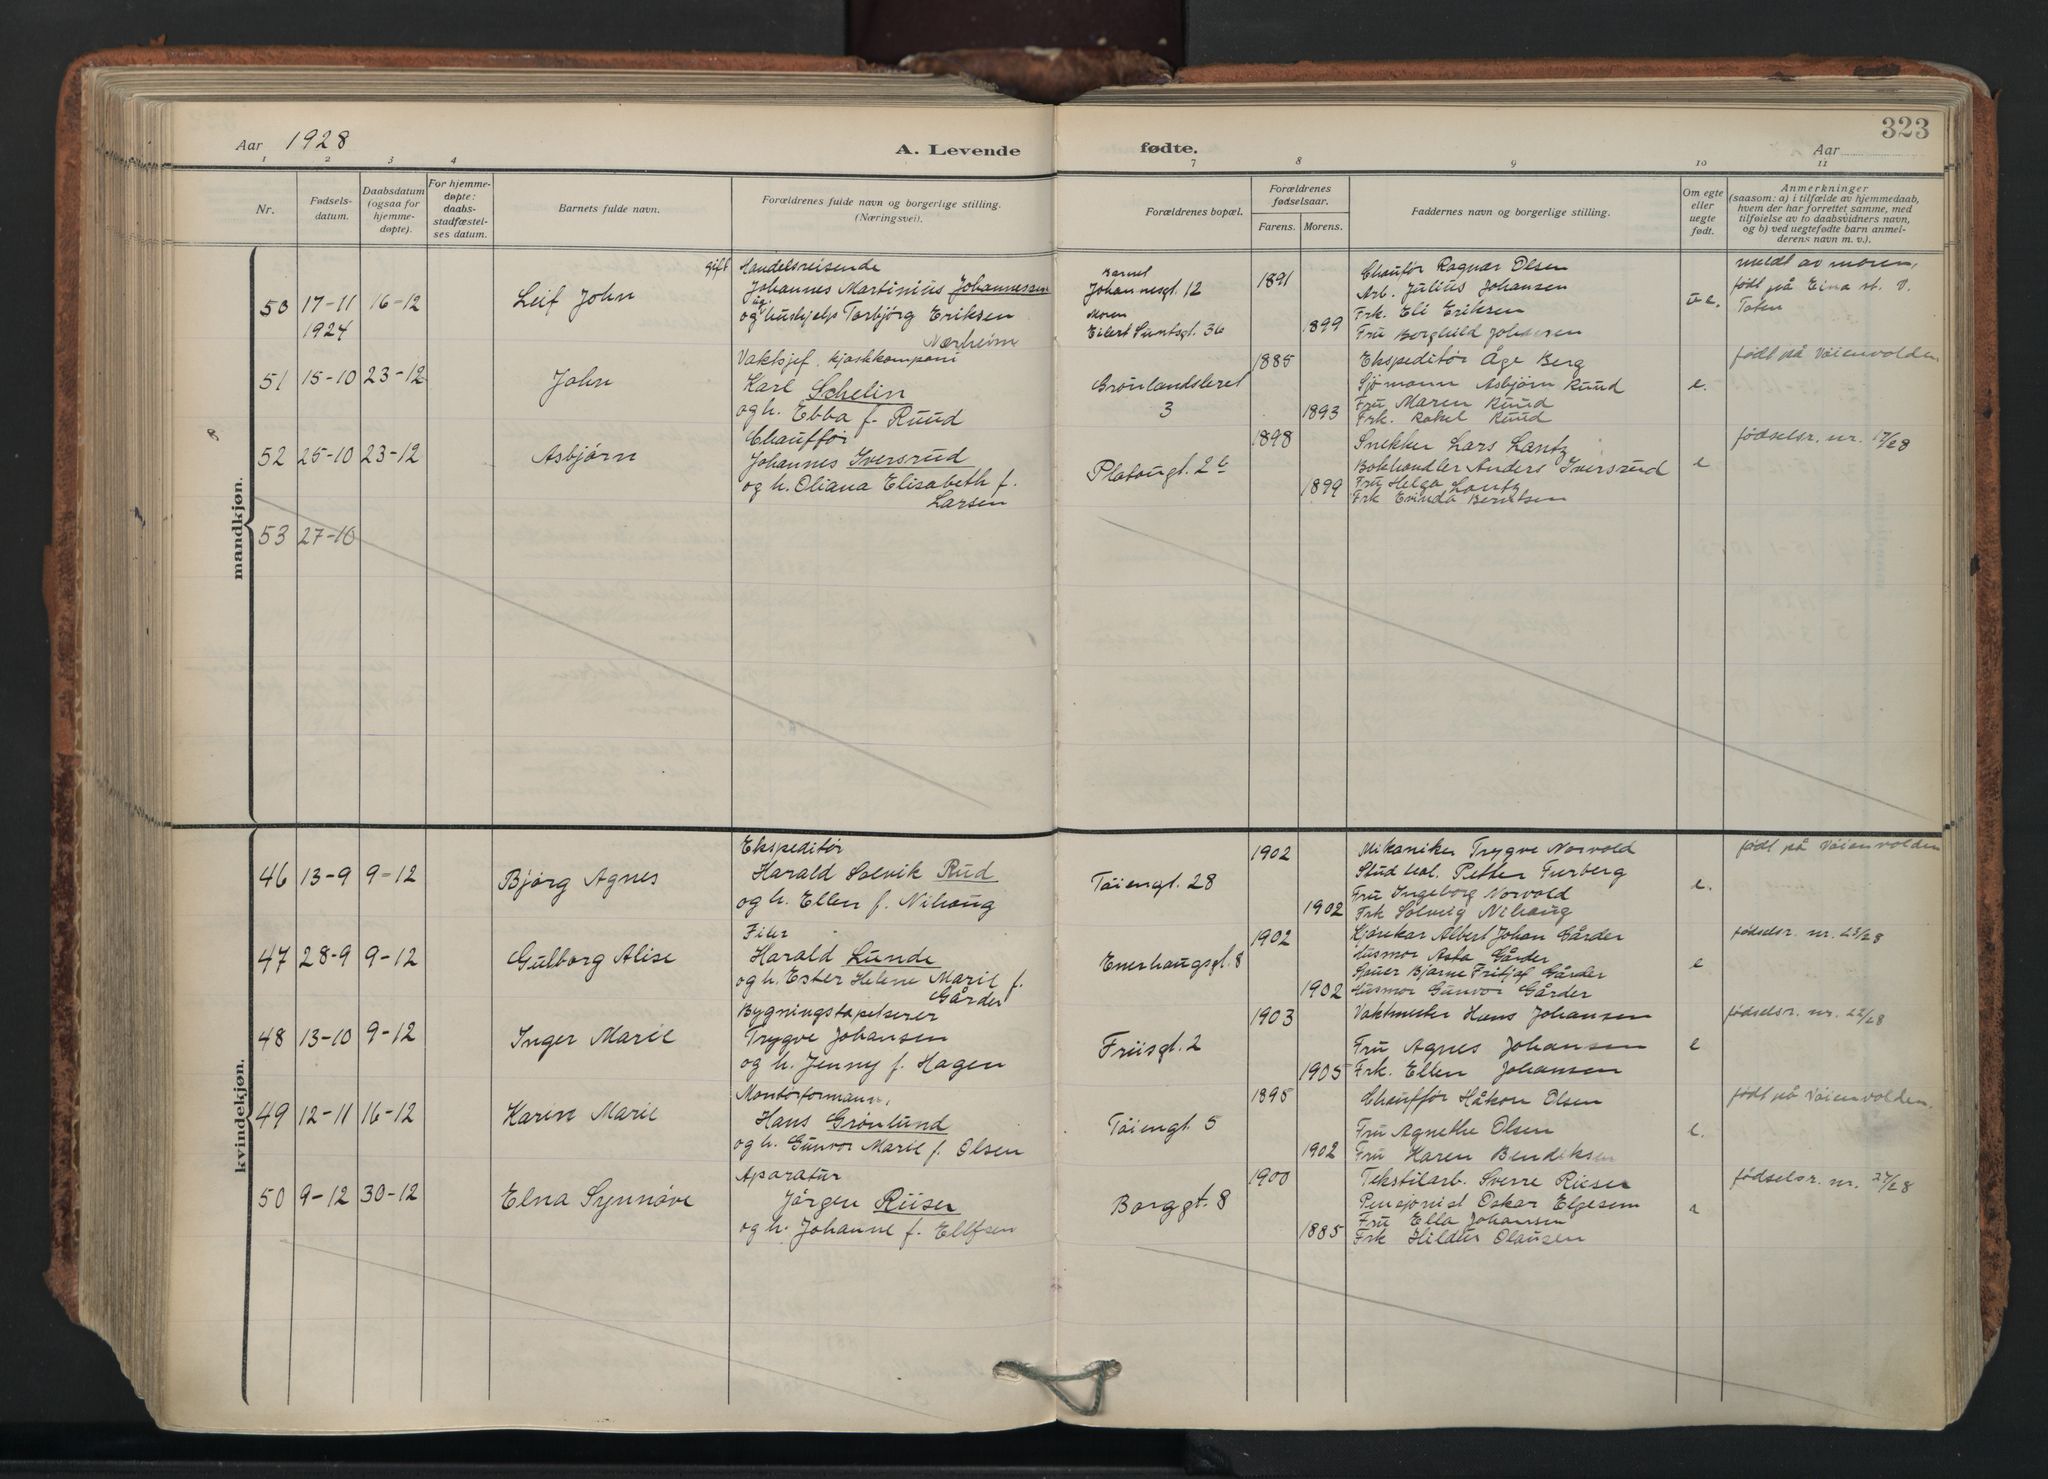 323
Aar 1928
A. Levende fødte.
Aar
1 2 3 4 7 8 9 10 11
Nr.
Fødsels-
datum.
Daabsdatum
(ogsaa for
hjemme-
døpte).
For hjemme-
døpte:
daabs-
stadfæstel-
ses datum.
Barnets fulde navn.
Forældrenes fulde navn og borgerlige stilling.
(Næringsvei).
Forældrenes bopæl.
Forældrenes
fødselsaar.
Farens. Morens.
Faddernes navn og borgerlige stilling.
Om egte
eller
uegte
født.
Anmerkninger
(saasom: a) i tilfælde av hjemmedaab,
hvem der har forrettet samme, med
tilføielse av to daabsvidners navn,
og b) ved uegtefødte barn anmel-
derens navn m. v.).
mandkjøn.
50 17-11 16-12
1924
Leif John
gift Handelsreisende
Johannes Martinius Johannessen
og ug. hushjelp Torbjørg Eriksen
Nærheim
Barnet
Johannesgt. 12
Moren
Eilert Suntsgt. 36
1891
1899
Chauffør Ragnar Olsen
Arb. Julius Johansen
Frk. Eli Eriksen
Fru Borghild Johansen
u e.
meldt av moren,
født på Eina st. V.
Toten
51 15-10 23-12
John
Vaktsjef, kjoskkompani
Karl Schelin
og h. Ebba f. Ruud
Grønlandsleret
3
1885
1893
Ekspeditør Åge Berg
Sjømann Asbjørn Ruud
Fru Maren Ruud
Frk. Rakel Ruud
e.
født på Vöienvolden
52 25-10 23-12
Asbjørn
Chauffør
Johannes Iversrud
og h. Oliana Elisabeth f.
Larsen
Platougt. 2b
1898
1899
Snekker Lars Lantz
Bokhandler Anders Iversrud
Fru Helga Lantz
Frk Evinda Berntsen
e
fødselsr. nr. 17/28
53 27-10
kvindekjøn.
46 13-9 9-12
Bjørg Agnes
Ekspeditør
Harald Solvik Rud
og h. Ellen f. Nihaug
Töiengt. 28
1902
1902
Mikaniker Trygve Norvold
Stud. real. Petter Furberg
Fru Ingeborg Norvold
Frk Solveig Nihaug
e.
født på Vöienvolden
47 28-9 9-12
Gulborg Alise
Filer
Harald Lunde
og h. Ester Helene Marie f.
Gårder
Enerhaugsgt. 8
1902
1902
Kjørekar Albert Johan Gårder
Husmor Asta Gårder
Bjarne Fritjof Gårder
Husmor Gunvor Gårder
e
fødselsr. nr. 23/28
48 13-10 9-12
Inger Marie
Bygningstapetserer
Trygve Johansen
og h. Jenny f. Hagen
Friisgt. 2
1903
1905
Vaktmester Hans Johansen
Fru Agnes Johansen
Frk. Ellen Johansen
e
fødselsr. nr. 22/28
49 12-11 16-12
Karin Marie
Montørformann,
Hans Grønlund
og h. Gunvor Marie f. Olsen
Töiengt. 5
1895
1902
Chauffør Håkon Olsen
Fru Agnethe Olsen
Fru Karen Bendiksen
e.
født på Vöienvolden.
50 9-12 30-12
Elna Synnøve
Aparatur
Jørgen Riiser
og h. Johanne f. Ellfsen
Borggt. 8
1900
1885
Tekstilarb. Sverre Riiser
Pensjonist Oskar Elgesem
Fru Ella Johansen
Frk Hildur Olausen
e
fødselsr. nr. 27/28